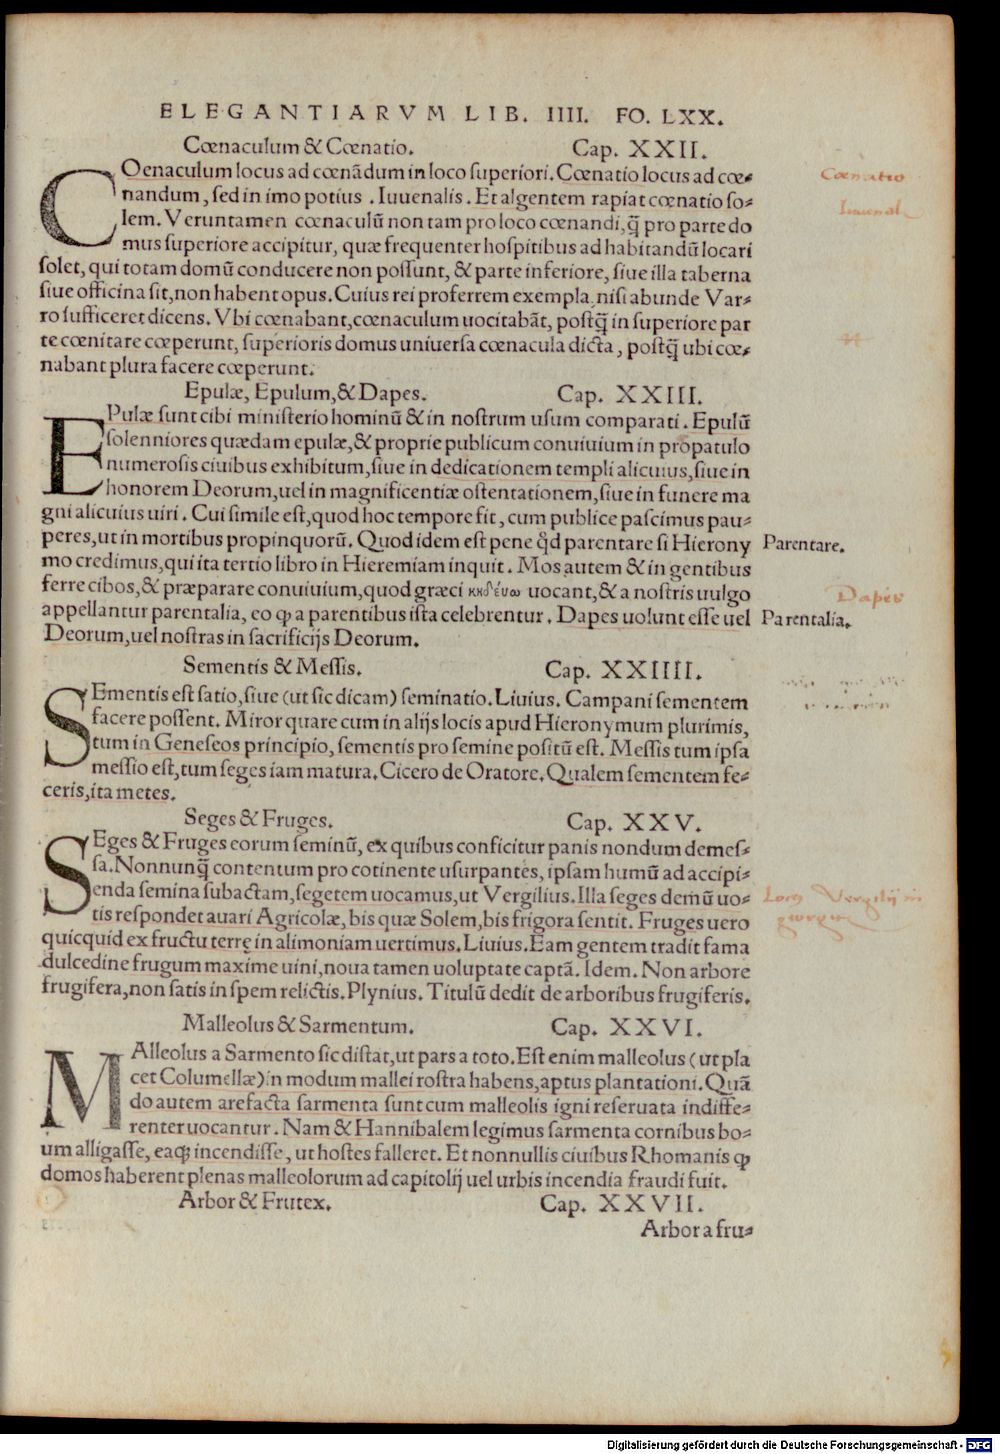 ELEGANTIARVM LIB. IIII. FO. LXX.
Cœnaculum & Cœnatio. Cap. XXII.
COenaculum locus ad cœnãdum in loco superiori. Cœnatio locus ad cœ-
nandum, sed in imo potius . Iuuenalis . Et algentem rapiat cœnatio so-
lem. Veruntamen cœnaculũ non tam pro loco cœnandi, q̃ pro parte do
mus superiore accipitur, quæ frequenter hospitibus ad habitandũ locari
solet, qui totam domũ conducere non possunt, & parte inferiore, siue illa taberna
siue officina sit, non habent opus. Cuius rei proferrem exempla, nisi abunde Var-
ro sufficeret dicens. Vbi cœnabant, cœnaculum uocitabãt, postq̃ in superiore par
te cœnitare cœperunt, superioris domus uniuersa cœnacula dicta, postq̃ ubi cœ-
nabant plura facere cœperunt.
Epulæ, Epulum, & Dapes. Cap. XXIII.
EPulæ sunt cibi ministerio hominũ & in nostrum usum comparati . Epulũ
solenniores quædam epulæ, & proprie publicum conuiuium in propatulo
numerosis ciuibus exhibitum, siue in dedicationem templi alicuius, siue in
honorem Deorum, uel in magnificentiæ ostentationem, siue in funere ma
gni alicuius uiri . Cui simile est, quod hoc tempore fit, cum publice pascimus pau-
peres, ut in mortibus propinquorũ. Quod idem est pene q̃d parentare si Hierony
mo credimus, qui ita tertio libro in Hieremiam inquit . Mos autem & in gentibus
ferre cibos, & præparare conuiuium, quod græci κηδέυω uocant, & a nostris uulgo
appellantur parentalia, eo ꝙ a parentibus ista celebrentur . Dapes uolunt esse uel
Deorum, uel nostras in sacrificijs Deorum.
Sementis & Messis. Cap. XXIIII.
SEmentis est satio, siue (ut sic dicam) seminatio. Liuius. Campani sementem
facere possent. Miror quare cum in alijs locis apud Hieronymum plurimis,
tum in Geneseos principio, sementis pro semine positũ est. Messis tum ipsa
messio est, tum seges iam matura. Cicero de Oratore. Qualem sementem fe-
ceris, ita metes.
Seges & Fruges. Cap. XXV.
SEges & Fruges eorum seminũ, ex quibus conficitur panis nondum demes-
sa. Nonnunq̃ contentum pro cotinente usurpantes, ipsam humũ ad accipi-
enda semina subactam, segetem uocamus, ut Vergilius. Illa seges demũ uo-
tis respondet auari Agricolæ, bis quæ Solem, bis frigora sentit. Fruges uero
quicquid ex fructu terrę in alimoniam uertimus. Liuius. Eam gentem tradit fama
dulcedine frugum maxime uini, noua tamen uoluptate captã. Idem. Non arbore
frugifera, non satis in spem relictis. Plynius. Titulũ dedit de arboribus frugiferis.
Malleolus & Sarmentum. Cap. XXVI.
MAlleolus a Sarmento sic distat, ut pars a toto. Est enim malleolus (ut pla
cet Columellæ) in modum mallei rostra habens, aptus plantationi. Quã
do autem arefacta sarmenta sunt cum malleolis igni reseruata indiffe-
renter uocantur . Nam & Hannibalem legimus sarmenta cornibus bo-
um alligasse, eaq; incendisse, ut hostes falleret. Et nonnullis ciuibus Rhomanis ꝙ
domos haberent plenas malleolorum ad capitolij uel urbis incendia fraudi fuit.
Arbor & Frutex. Cap. XXVII.
Arbor a fru-
Cœnatio
Iuuenal
Parentare.
Dapes
Parentalia.
Vergilij in
Digitalisierung gefördert durch die Deutsche Forschungsgemeinschaft - DFG